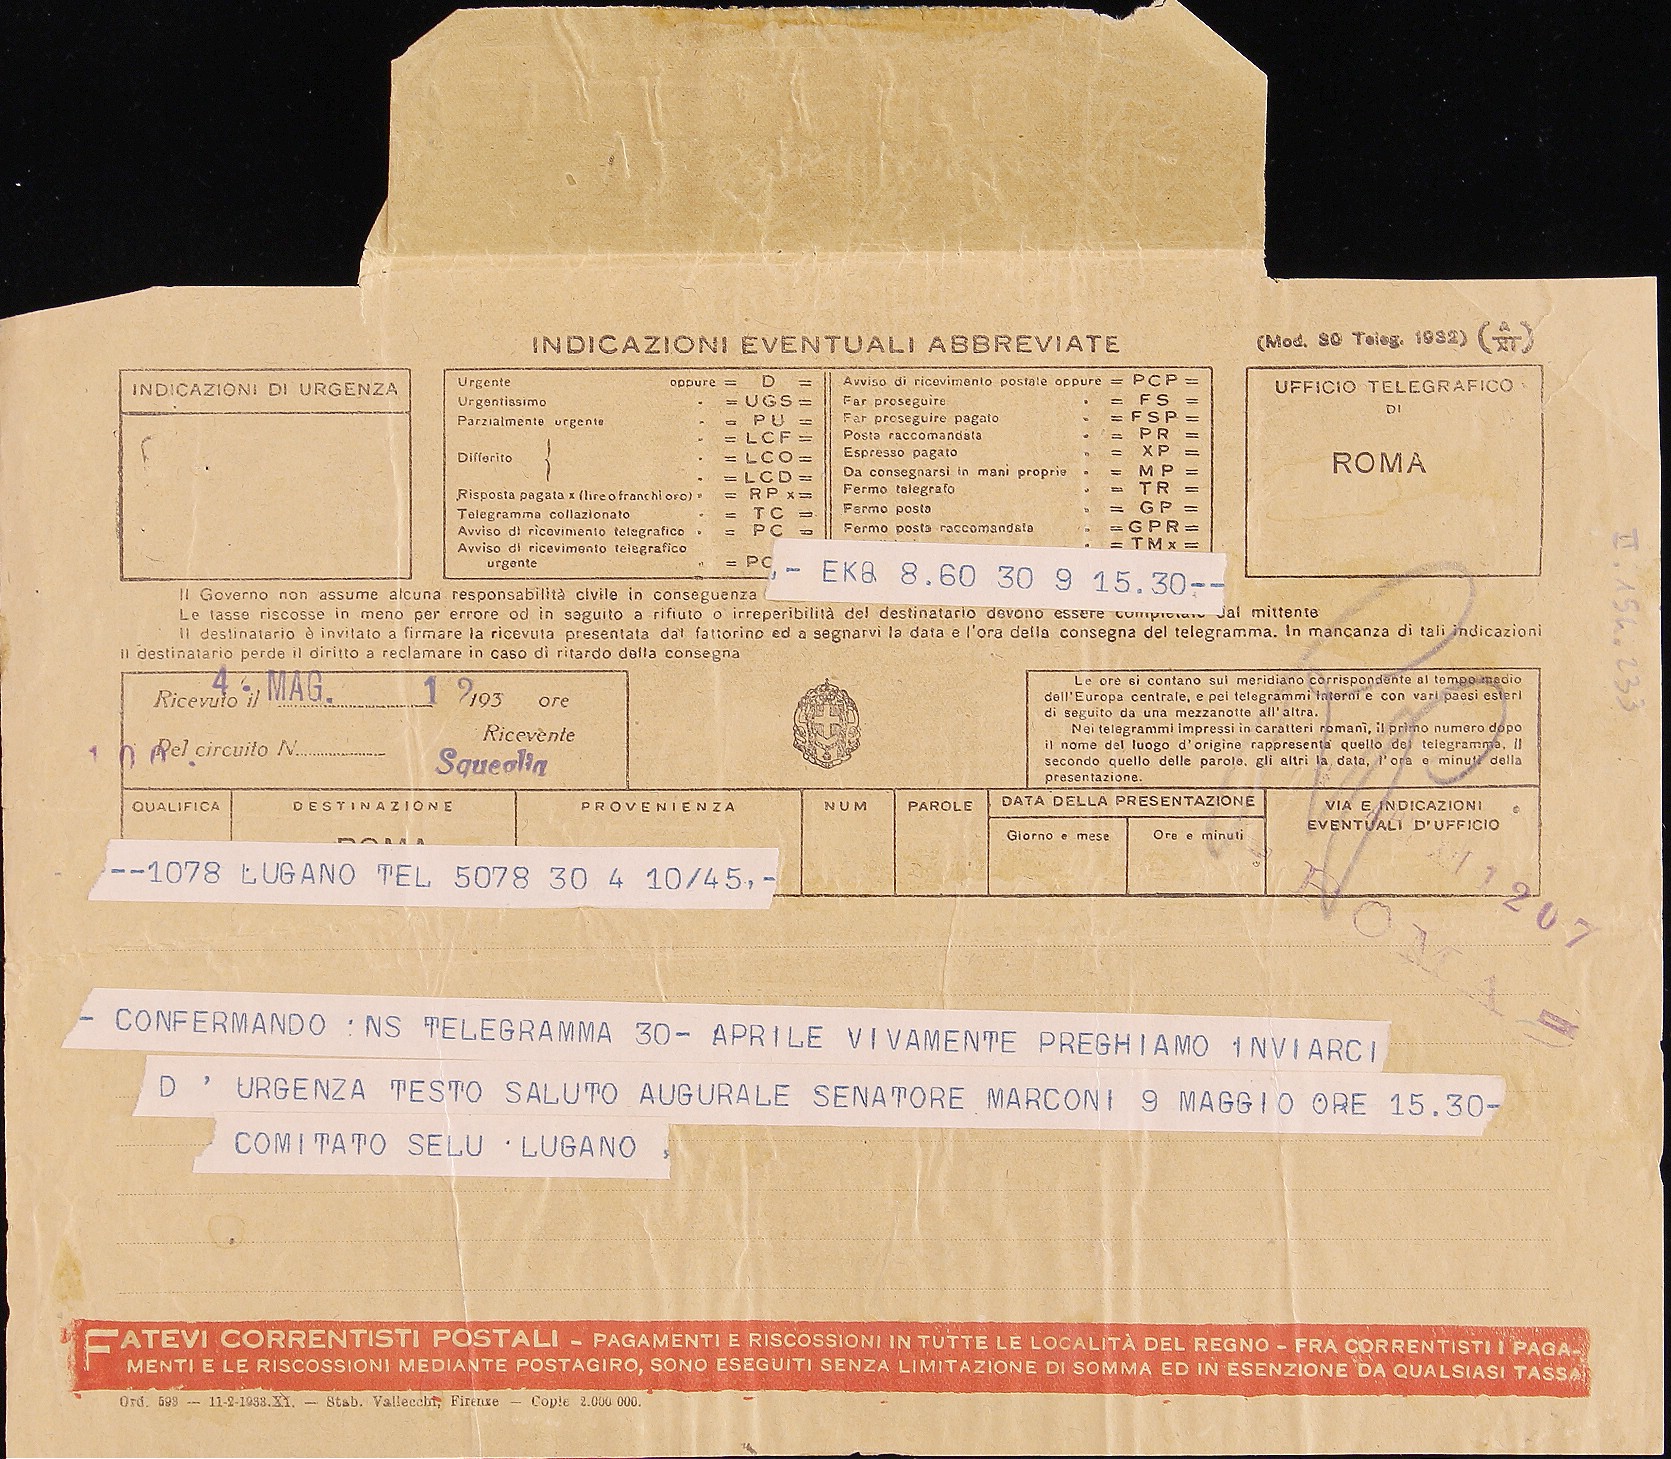 INDICAZIONI EVENTUALI ABBREVIATE
(Mod. 30 Teleg. 1932) (A/XI)
INDICAZIONI DI URGENZA
Urgente oppure = D =
Urgentissimo " = UGS =
Parzialmente urgente " = PU =
" = LCF =
Differito " = LCO =
" = LCD =
Risposta pagata x (lire o franchi oro) " = RP x =
Telegramma collazionato " = TC =
Avviso di ricevimento telegrafico " = PC =
Avviso di ricevimento telegrafico
urgente " = PC
Avviso di ricevimento postale oppure = PCP =
Far proseguire " = FS =
Far proseguire pagato " = FSP =
Posta raccomandata " = PR =
Espresso pagato " = XP =
Da consegnarsi in mani proprie " = MP =
Fermo telegrafo " = TR =
Fermo posta " = GP =
Fermo posta raccomandata " = GPR =
" = TMx =
UFFICIO TELEGRAFICO
DI
ROMA
- EKQ 8.60 30 9 15.30--
Il Governo non assume alcuna responsabilità civile in conseguenza
Le tasse riscosse in meno per errore od in seguito a rifiuto o irreperibilità del destinatario devono essere completate dal mittente
Il destinatario è invitato a firmare la ricevuta presentata dal fattorino ed a segnarvi la data e l'ora della consegna del telegramma. In mancanza di tali indicazioni
il destinatario perde il diritto a reclamare in caso di ritardo della consegna
Ricevuto il 4. MAG. 193 ore
Pel circuito N.
Ricevente
Squeolin
Le ore si contano sul meridiano corrispondente al tempo medio
dell'Europa centrale, e pei telegrammi interni e con vari paesi esteri
di seguito da una mezzanotte all'altra.
Nei telegrammi impressi in caratteri romani, il primo numero dopo
il nome del luogo d'origine rappresenta quello del telegramma, il
secondo quello delle parole, gli altri la data, l'ora e minuti della
presentazione.
II.154.233
QUALIFICA DESTINAZIONE PROVENIENZA NUM PAROLE DATA DELLA PRESENTAZIONE VIA E INDICAZIONI
EVENTUALI D'UFFICIO
Giorno e mese Ore e minuti
ROMA
--1078 LUGANO TEL 5078 30 4 10/45.-
1207
ROMA
- CONFERMANDO :NS TELEGRAMMA 30- APRILE VIVAMENTE PREGHIAMO INVIARCI
D ' URGENZA TESTO SALUTO AUGURALE SENATORE MARCONI 9 MAGGIO ORE 15.30-
COMITATO SELU LUGANO
FATEVI CORRENTISTI POSTALI - PAGAMENTI E RISCOSSIONI IN TUTTE LE LOCALITÀ DEL REGNO - FRA CORRENTISTI I PAGA-
MENTI E LE RISCOSSIONI MEDIANTE POSTAGIRO, SONO ESEGUITI SENZA LIMITAZIONE DI SOMMA ED IN ESENZIONE DA QUALSIASI TASSA
Ord. 593 — 11-2-1933.XI. — Stab. Vallecchi, Firenze — Copie 2.000.000.